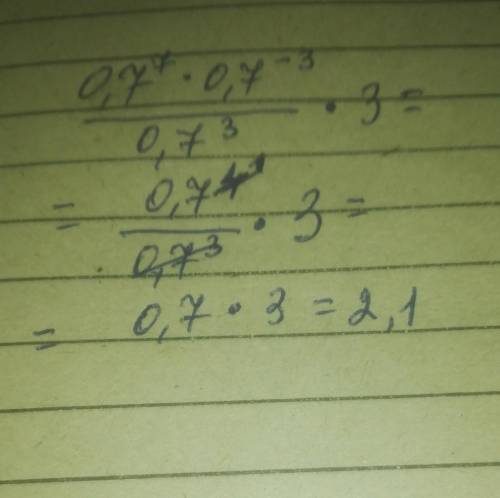 0,7⁷ · 0,7⁻³ / 0,7³ · 3 =
= 0,7⁴ ¹ / 0,7³ · 3 =
= 0,7 · 3 = 2,1